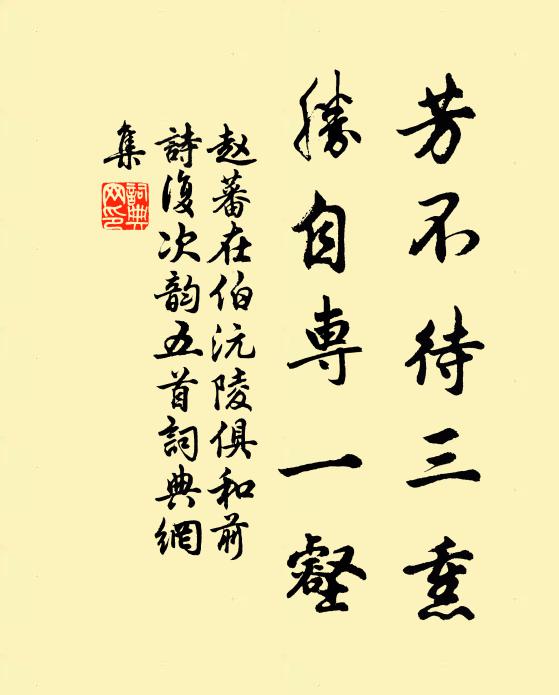 芳不待三熏
勝自専一壑
赵蕃在伯沅陵俱和前
詩復次韵五首詞典網
集
詞典
网印